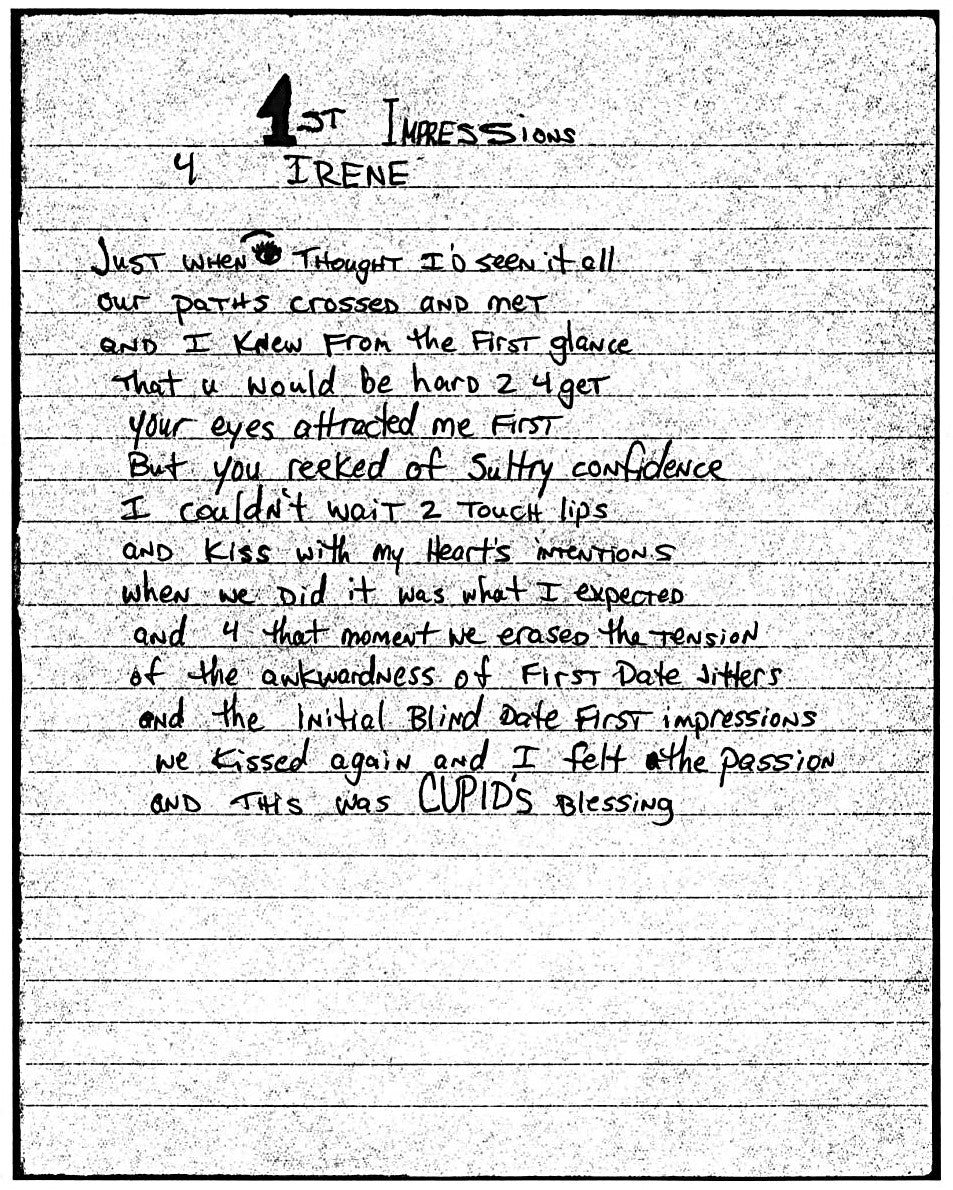 1ST IMPRESSIONS
4 IRENE
JUST WHEN 👁 THOUGHT I'D SEEN it all
our PATHS CROSSED AND MET
AND I KNEW FROM the FIRST glance
That u would be hard 2 4get
your eyes attracted me FIRST
But you reeked of Sultry confidence
I couldn't wait 2 TOUCH lips
AND KISS with my Heart's INTENTIONS
when we Did it was what I expected
and 4 that moment we erased the TENSION
of the awkwardness of FIRST Date Jitters
and the Initial Blind Date First impressions
we kissed again and I felt the passion
AND THIS was CUPID'S Blessing